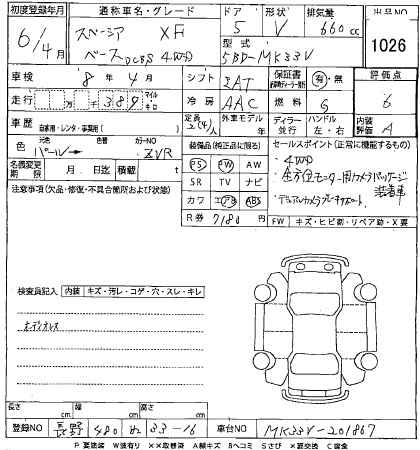 初度登録年月 通称車名・グレード ドア 形状 排気量 出品NO
6/4月 スペーシア XF 5 V 660cc 1026
ベース DCBS 4WD 型式 5BD-MK33V
車検 8年4月 シフト IAT 保証書 有・無 評価点
走行 389 マイル キロ 冷房 AAC 燃料 G 6
車歴 自家用・レンタ・事業用( ) 定員 2(4)人 外車モデル 年 ディーラー 並行 ハンドル 左・右 内装評価 A
色 元色 パール→ カラーNO ZVR 装備品(純正品に限る) セールスポイント(正常に機能するもの)
名義変更期限 月 日迄 積載 t PS PW AW ・4WD
注意事項(欠品・修復・不具合箇所および状態) SR TV ナビ ・全方位モニター用カメラパッケージ装着車
カワ エアB ABS ・デュアルカメラブレーキサポート
R券 7180円 FW キズ・ヒビ割・リペア跡・X要
検査員記入 内装 キズ・汚レ・コゲ・穴・スレ・キレ
オーディオレス
長さ cm 幅 cm 高さ cm
登録NO 長野 480 33-16 車台NO MK33V-201867
P 要塗装 W波有り XX取替済 A線キズ Bヘコミ Sさび X要交換 C腐食